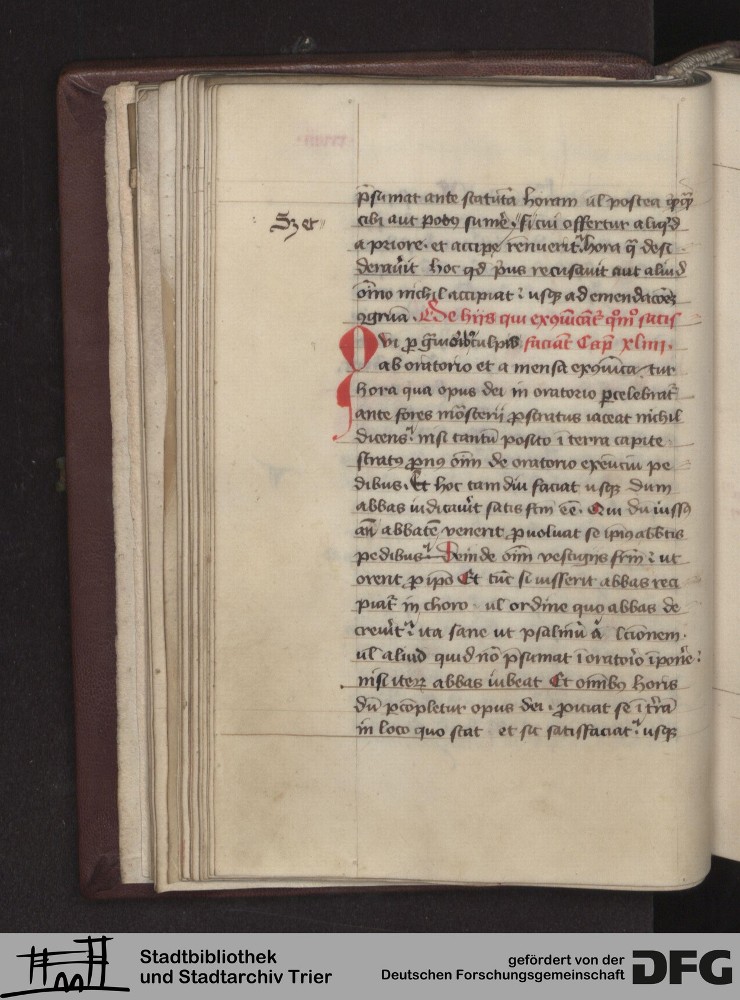 p̄sumat ante statuta horam ul postea qͥcqͣ
Sz et
cibi aut potus sume͛. si cui offertur aliqͥd
a priore. et accipe rennuerit: hora qͣ desi
derauit hoc qd pͥus recusauit aut aliud
oīno nichil accipiat: usqꝫ ad emendacōeꝫ
ꝯgruā. De hijs qui exꝯūicāt͛ qͦmͦ satis
Qui ꝓ gͣuioribꝰ culpis faciāt Cap̄ xliiii.
ab oratorio et a mensa exꝯūicātur
hora qua opus dei in oratorio ꝑcelebrat͛
ante fores mōsterii ꝓstratus iaceat nichil
dicens: nisi tantū posito ī terra capite
stratꝰ ꝓnꝰ oīm de oratorio exeunciū pe
dibus. Et hoc tam diu faciat usqꝫ dum
abbas iudicauͥt satis fcm̄ eē. Qui dū iussꝰ
an̄ abbatē venerit ꝓuoluat se ipiꝰ abbatis
pedibus: Deinde oīm vestigijs fr̄m: ut
orent ꝓ ipō Et tūc si iusserit abbas reci
piat͛ in choro. ul ordine quo abbas de
creuͥt: ita sane ut psalmū aͥ lcōionem.
ul aliud quid nō p̄sumat ī oratoͥo īpone͛:
nisi iteꝝ abbas iubeat Et omībꝰ horis
dū ꝑcopletur opus dei. ꝓiciat se ī tr̄ā
in loco quo stat et sic satisfaciat: usqꝫ
Stadtbibliothek
und Stadtarchiv Trier
gefördert von der
Deutschen Forschungsgemeinschaft
DFG